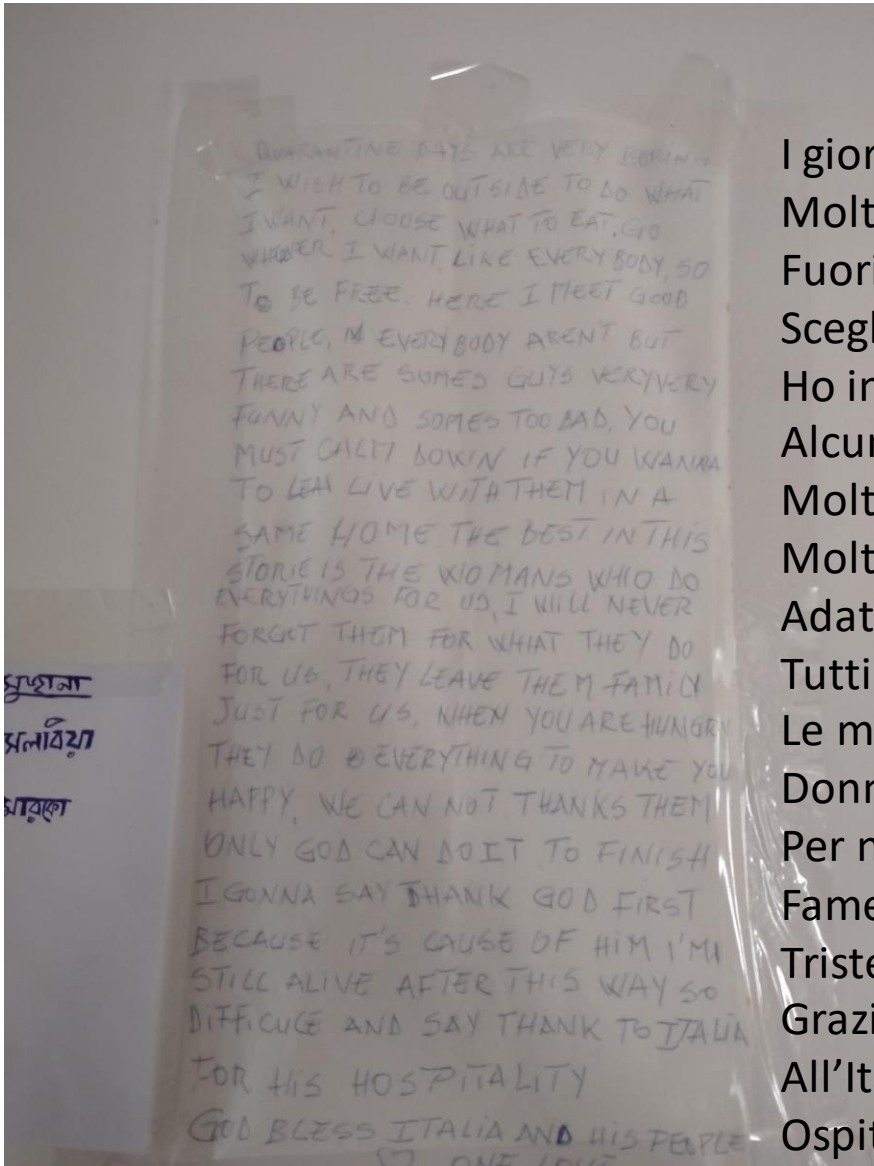 QUARANTINE DAYS ARE VERY BORING
I WISH TO BE OUTSIDE TO DO WHAT
I WANT, CHOOSE WHAT TO EAT, GO
I WANT LIKE EVERY BODY, SO
TO BE FREE. HERE I MEET GOOD
PEOPLE, EVERYBODY ARENT BUT
THERE ARE SOMES GUYS VERYVERY
FUNNY AND SOMES TOO BAD, YOU
MUST CALM DOWN IF YOU WANNA
TO LIVE WITH THEM IN A
SAME HOME THE BEST IN THIS
STORIE IS THE WOMANS WHO DO
EVERYTHINGS FOR US, I WILL NEVER
FORGOT THEM FOR WHAT THEY DO
FOR US, THEY LEAVE THEM FAMILY
JUST FOR US, WHEN YOU ARE HUNGRY
THEY DO EVERYTHING TO MAKE YOU
HAPPY, WE CAN NOT THANKS THEM
ONLY GOD CAN DO IT TO FINISH
I GONNA SAY THANK GOD FIRST
BECAUSE IT'S CAUSE OF HIM I'M
STILL ALIVE AFTER THIS WAY SO
DIFFICULE AND SAY THANK TO ITALIA
FOR HIS HOSPITALITY
GOD BLESS ITALIA AND HIS PEOPLE
ONE LOVE
সুহানা
সলাবিয়া
মারকো
I gior
Molt
Fuori
Scegl
Ho in
Alcun
Molt
Molt
Adat
Tutti
Le m
Donn
Per n
Fame
Triste
Grazi
All'It
Ospit